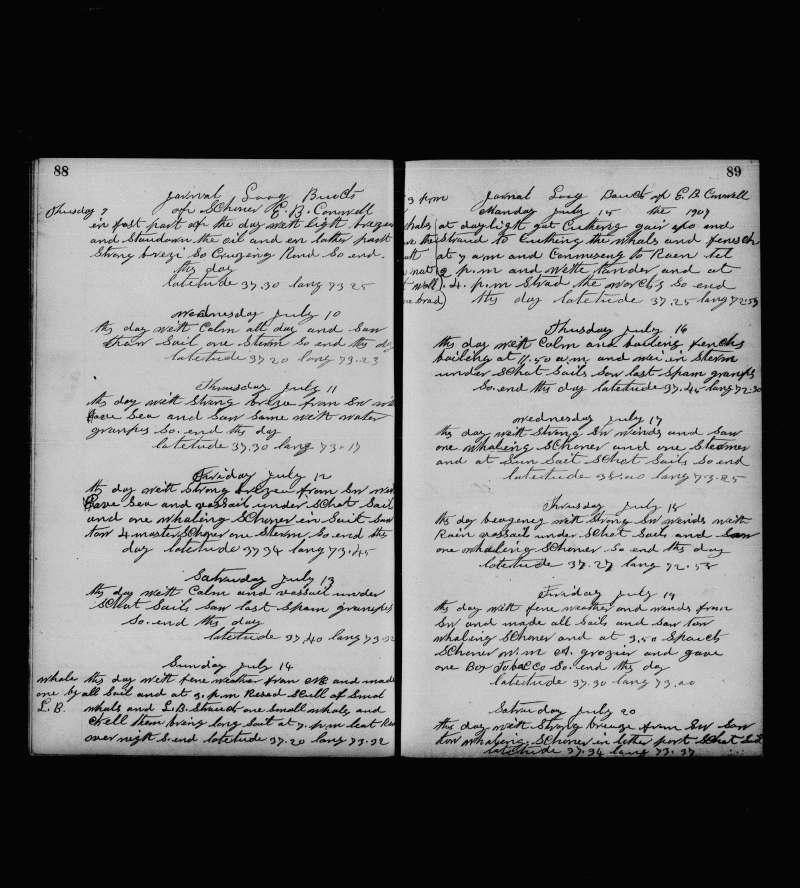 88
Jornal Loog Buock
Thusday 9 of Schoner E. B. Conwell
in fast part of the day with light brezes
and standown the oil and en lather part
Strong brezi So Cruizing Rond So end.
ths day
latetude 37.30 lang 73 25
wednesday july 10
ths day with Calm all day and Saw
Sail one Sterm So end ths day
latetude 37 20 lang 73.23
Thusday july 11
ths day with Strong breze from Sw
Have Sea and Saw Some with water
granpus So. end ths day
latetude 37.30 lang 73.17
Friday july 12
ths day with Strong brezee from Sw
Have Sea and vassail under SChat Sail
and one whaling SChoner in Sait Saw
tow 4 master SChoner one Sterm, So end ths
day latetude 37 34 lang 73.45
Satruday july 13
ths day with Calm and vassail under
SChat Sails Saw last Spam granpus
So. end ths day
latetude 37.40 lang 73.32
Sunday july 14
whale ths day with fene weather fran NE and made
one by all Sail and at 3. p.m Rased SCull of Smal
L. B. whals and L.B. Straick one Small whals and
them bring long Sait at 7. p.m
over night S. end latetude 37.20 lang 73.32
89
3 p.m Jornal Loog Bouck of E. B Conwell
Monday july 15 the 1907
at day light gut Cuthing gair apo and
Straid to Cuthing the whals and fenesch
at 7 a.m and Conmeseng to Raen tel
2 p.m and wette tander and at
4. p.m Strad the worcks So end
ths day latetude 37.25 lang 72.59
Thusday july 16
ths day with Calm and boiling fenchs
boiling at 11.50 a.m and Sterm
under SChat Sails Saw last Spam granpus
So. end ths day latetude 37.45 lang 72.30
wednesday july 17
ths day with Strong Sw winds and Saw
one whaling SChoner and one Steamer
and at Sun Sait SChat Sails So end
latetude 38.00 lang 73.25
Thusday july 18
ths day beageneg with Strong Sw wends with
Rain vassail under SChat Sails and Saw
one whaling SChoner. So end ths day
latetude 37.27 lang 72.58
Friday july 19
ths day with fene weather and wends from
Sw and made all Sails and Saw tow
whaling SChoner and at 3.50 Spaick
SChoner W.m A. grozier and gave
one Box Tobacco So. end ths day
latetude 37.30 lang 73.00
Satruday july 20
ths day with Strong breeze from Sw Saw
tow whaling SChoner in letter part SChat Sail
latetude 37.34 lang 73.37